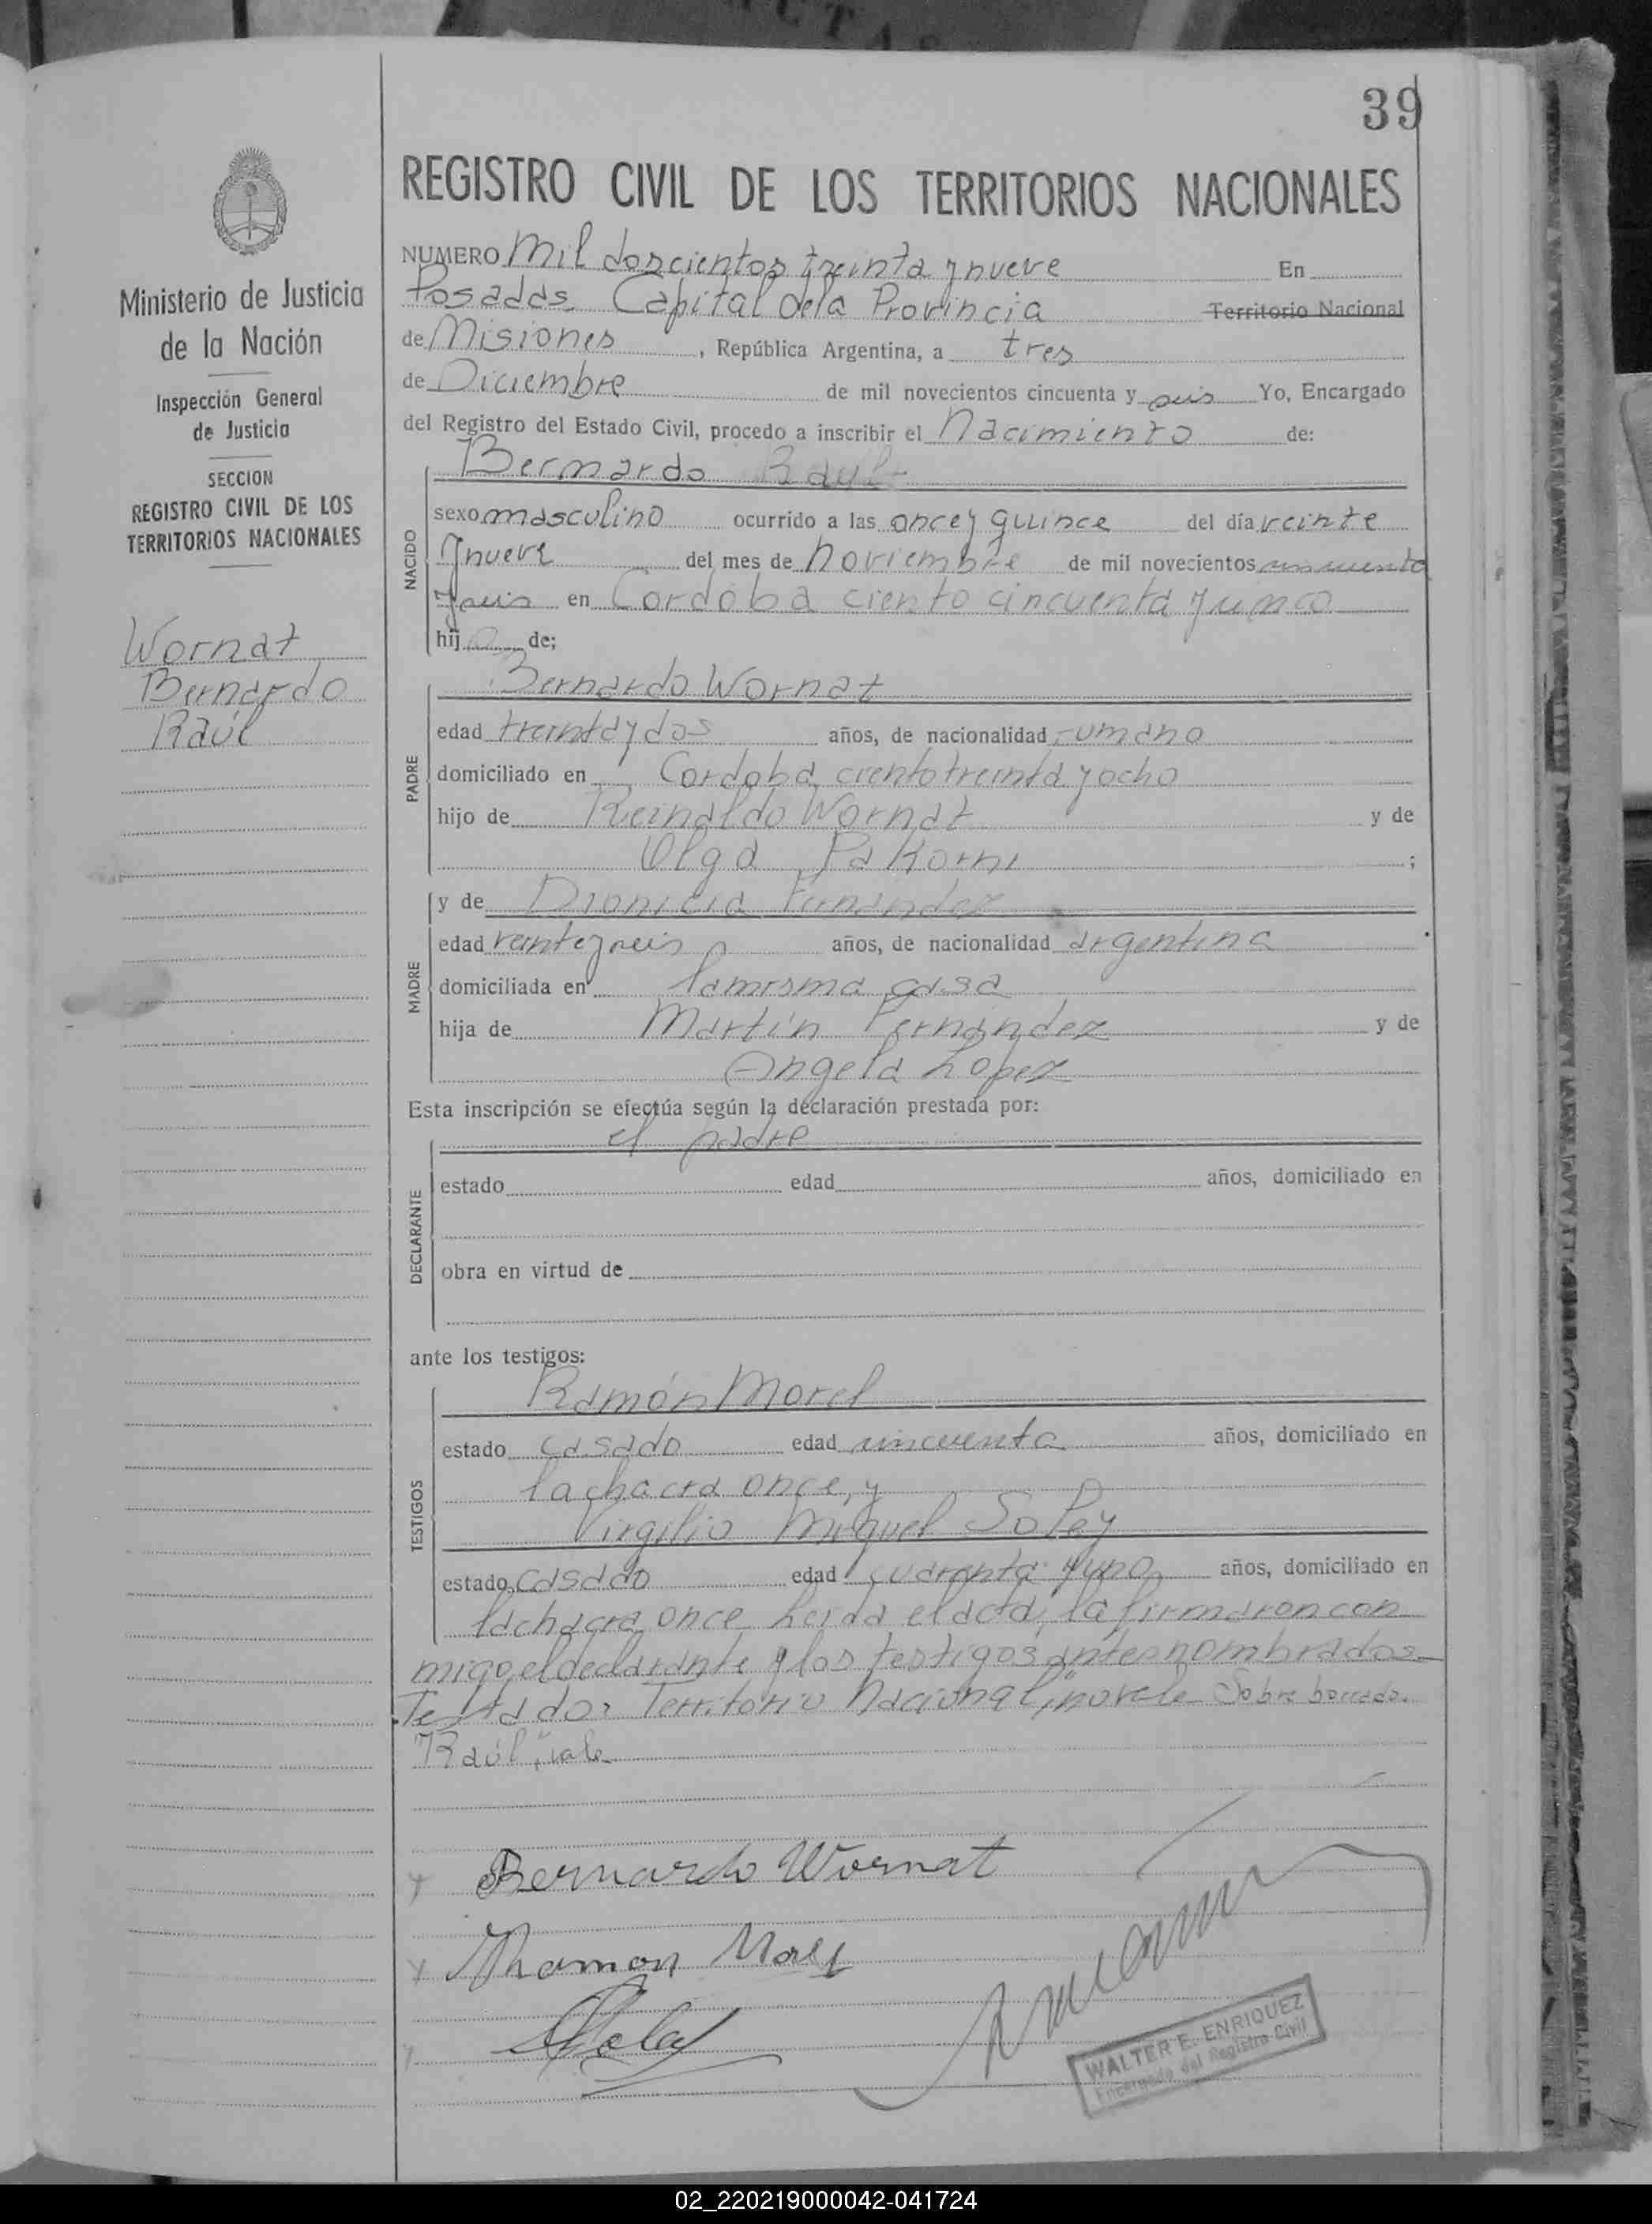 39
REGISTRO CIVIL DE LOS TERRITORIOS NACIONALES
Ministerio de Justicia
de la Nación
Inspección General
de Justicia
SECCION
REGISTRO CIVIL DE LOS
TERRITORIOS NACIONALES
Wornat
Bernardo
Raúl
NUMERO Mil doscientos treinta y nueve En
Posadas Capital de la Provincia Territorio Nacional
de Misiones, República Argentina, a tres
de Diciembre de mil novecientos cincuenta y seis Yo, Encargado
del Registro del Estado Civil, procedo a inscribir el Nacimiento de:
NACIDO
Bernardo Raúl
sexo masculino ocurrido a las once y quince del día veinte
y nueve del mes de noviembre de mil novecientos cincuenta
y seis en Cordoba ciento cincuenta y cinco
hijo de;
PADRE
Bernardo Wornat
edad treinta y dos años, de nacionalidad rumano
domiciliado en Cordoba ciento treinta y ocho
hijo de Reinaldo Wornat y de
Olga Pakorni;
MADRE
y de Dionicia Fernandez
edad veinte y seis años, de nacionalidad argentina
domiciliada en la misma casa
hija de Martín Fernández y de
Angela Lopez
Esta inscripción se efectúa según la declaración prestada por:
DECLARANTE
el padre
estado edad años, domiciliado en
obra en virtud de
ante los testigos:
TESTIGOS
Ramón Morel
estado casado edad cincuenta años, domiciliado en
la chacra once, y
Virgilio Miguel Soley
estado casado edad cuarenta y uno años, domiciliado en
la chacra once Leida el acta, la firmaron con
migo, el declarante y los testigos antes nombrados-
Testado: Territorio Nacional, no vale Sobre borrado.
Raúl, vale
Bernardo Wornat
Rhamon Morel
WALTER E. ENRIQUEZ
Encargado del Registro Civil
02_220219000042-041724